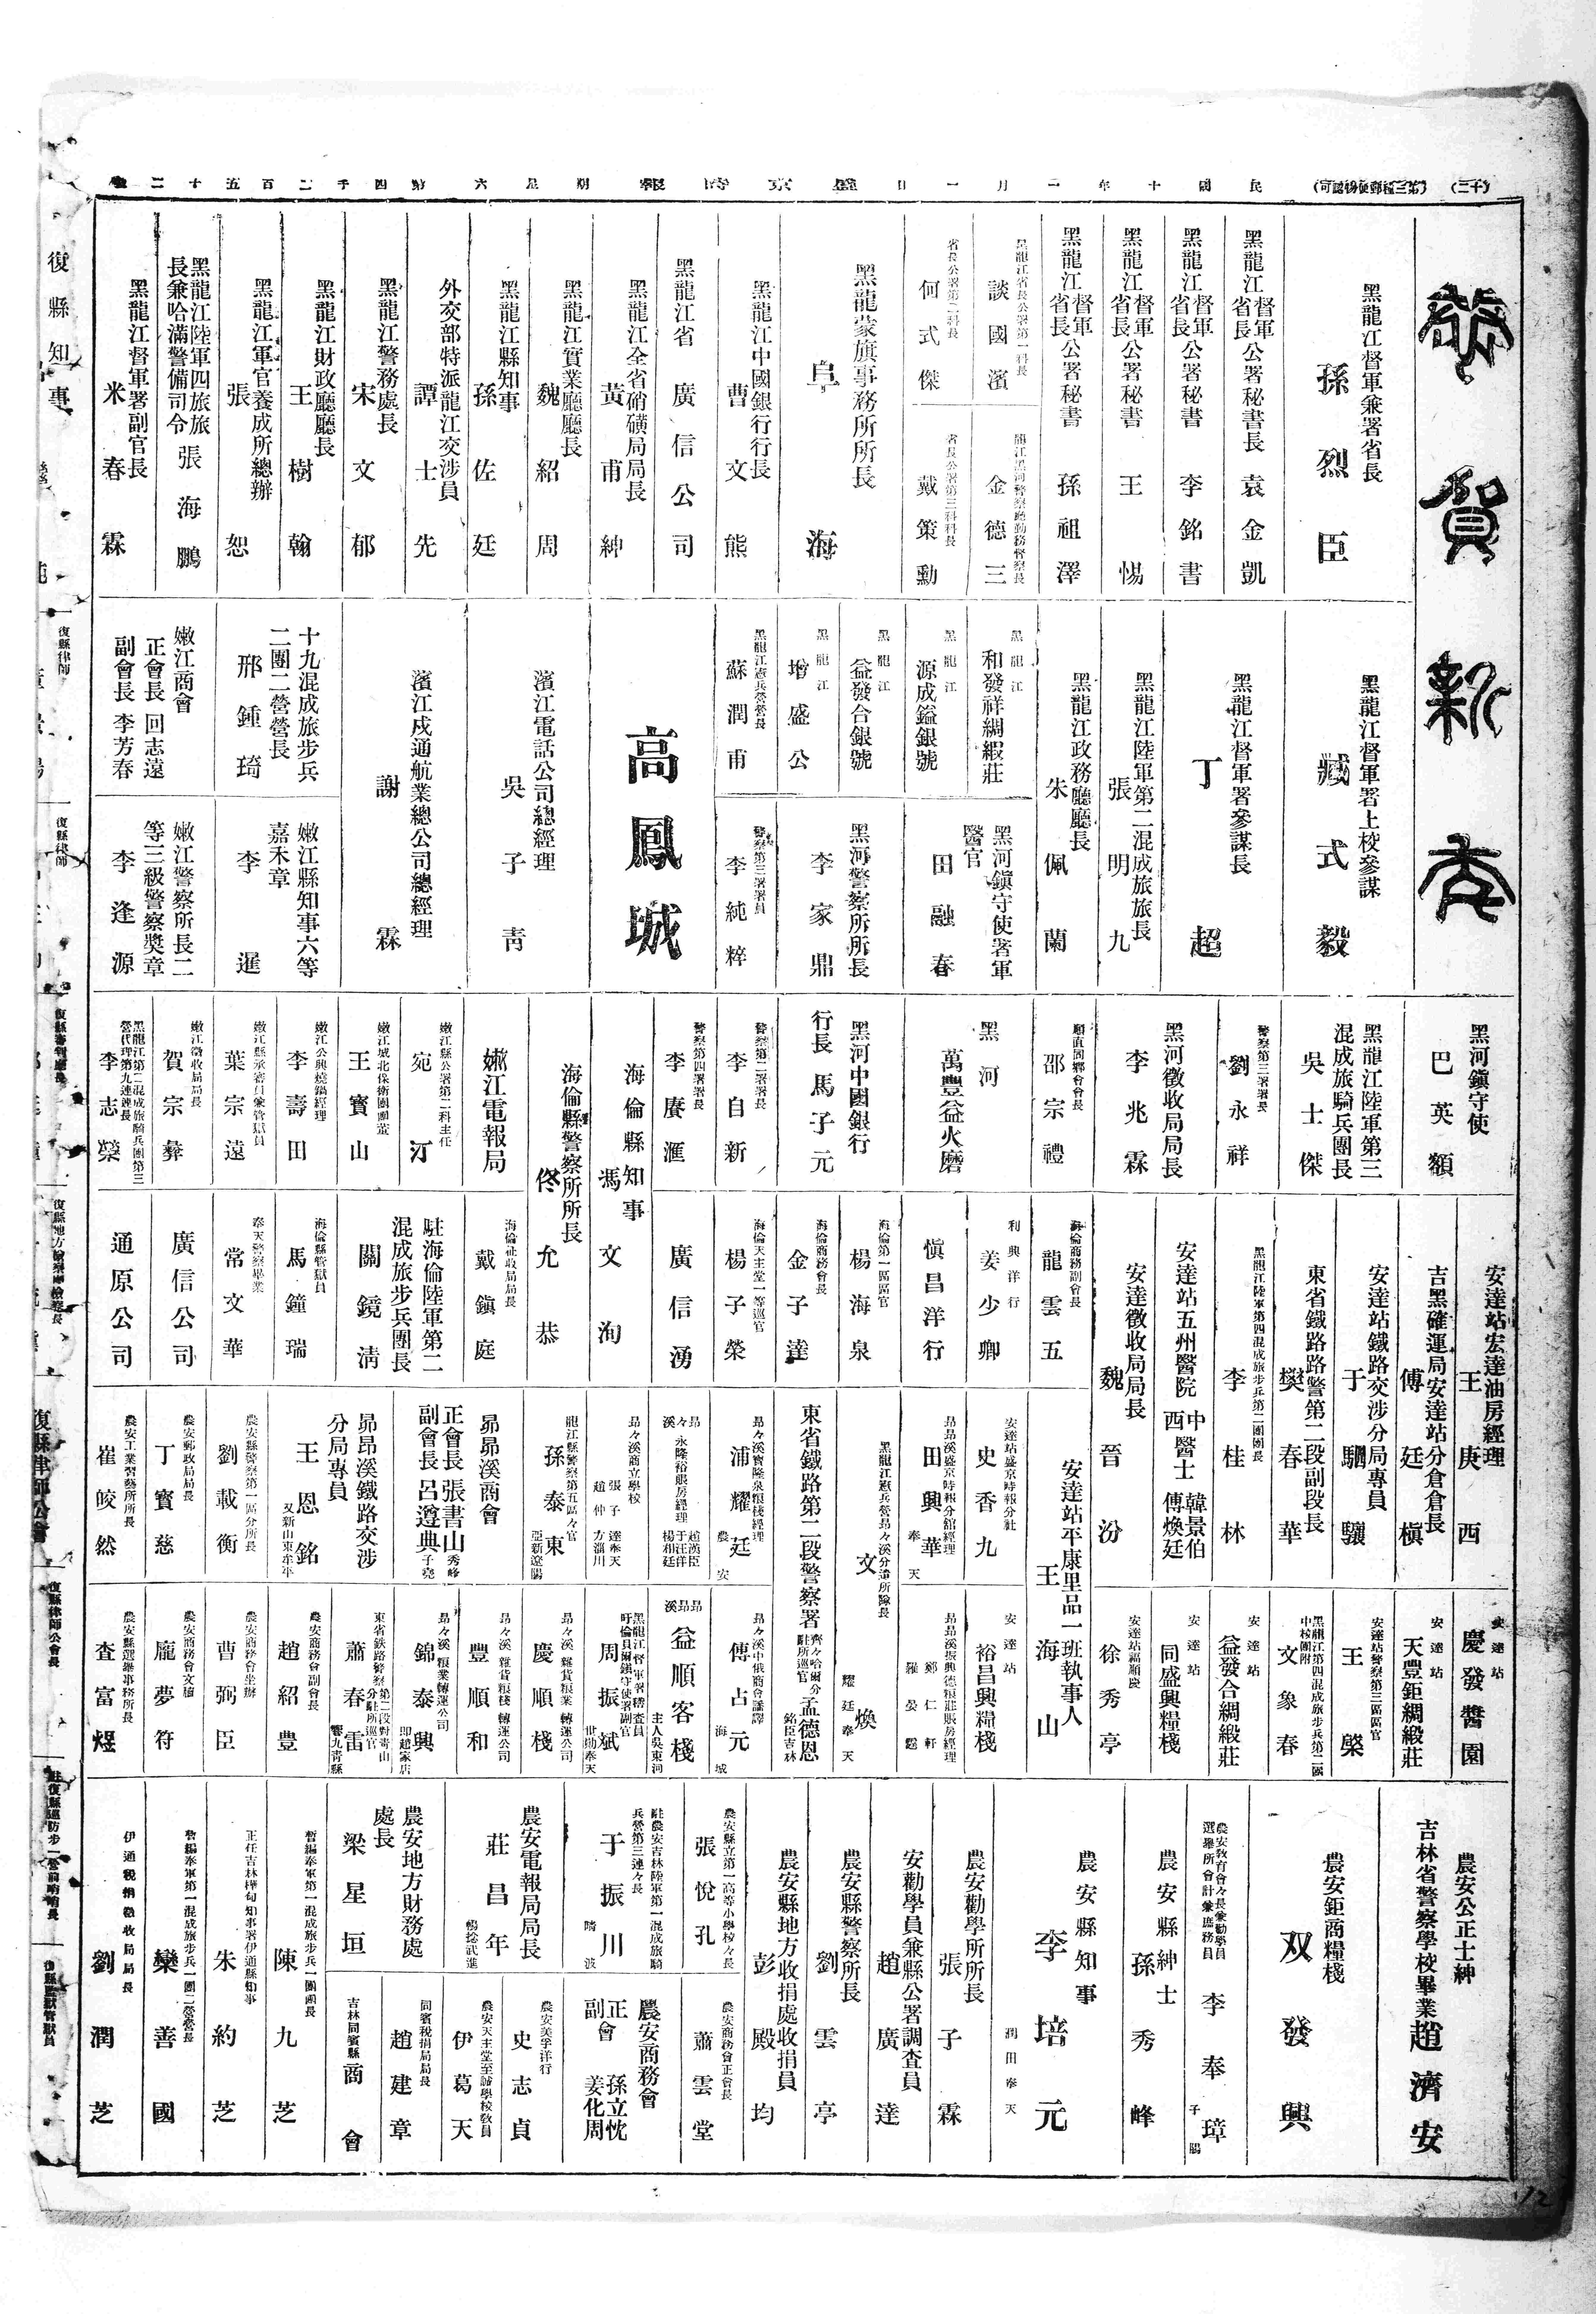 (十二)
(第三種郵便物認可)
民國十年一月一日
盛京時報
星期六
第四千二百五十二號
恭賀新禧
黑龍江督軍兼署省長
孫烈臣
黑龍江督軍省長公署秘書長 袁金凱
黑龍江督軍省長公署秘書 李銘書
黑龍江督軍省長公署秘書 王惕
黑龍江督軍省長公署秘書 孫祖澤
黑龍江省長公署第一科長
談國濱
龍江黑河警察廳勤務督察長
金德三
省長公署第二科長
何式傑
省長公署第三科科長
戴策勳
黑龍江蒙旗事務所所長
阜海
黑龍江中國銀行行長
曹文熊
黑龍江省 廣信公司
黑龍江全省硝磺局局長
黃甫紳
黑龍江實業廳廳長
魏紹周
黑龍江縣知事
孫佐廷
外交部特派龍江交涉員
譚士先
黑龍江警務處長
宋文郁
黑龍江財政廳廳長
王樹翰
黑龍江軍官養成所總辦
張恕
黑龍江陸軍四旅旅長兼哈滿警備司令 張海鵬
黑龍江督軍署副官長
米春霖
黑龍江督軍署上校參謀
臧式毅
黑龍江督軍署參謀長
丁超
黑龍江陸軍第二混成旅旅長
張明九
黑龍江政務廳廳長
朱佩蘭
黑龍江
和發祥綢緞莊
黑龍江
源成鎰銀號
黑龍江
益發合銀號
黑龍江
增盛公
黑龍江憲兵營營長
蘇潤甫
黑河鎮守使署軍醫官
田融春
黑河警察所所長
李家鼎
警察第三署署員
李純粹
高鳳城
濱江電話公司總經理
吳子青
濱江戍通航業總公司總經理
謝霖
十九混成旅步兵二團二營營長
邢鍾琦
嫩江縣知事六等嘉禾章
李暹
嫩江商會
正會長 回志遠
副會長 李芳春
嫩江警察所長二等三級警察獎章
李逢源
黑河鎮守使
巴英額
黑龍江陸軍第三混成旅騎兵團長
吳士傑
警察第三署署長
劉永祥
黑河徵收局局長
李兆霖
順直同鄉會會長
邵宗禮
黑河
萬豐益火磨
黑河中國銀行
行長 馬子元
警察第二署署長
李自新
警察第四署署長
李賡滙
海倫縣知事
馮文洵
海倫縣警察所所長
佟允恭
嫩江電報局
嫩江縣公署第二科主任
宛汀
嫩江城北保衛團團董
王寶山
嫩江公興燒鍋經理
李壽田
嫩江縣承審員兼管獄員
葉宗遠
嫩江徵收局局長
賀宗彝
黑龍江第二混成旅騎兵團第三營代理第九連連長
李志榮
安達站宏達油房經理
王庚西
吉黑確運局安達站分倉倉長
傅廷楨
安達站鐵路交涉分局專員
于駟驤
東省鐵路路警第二段副段長
樊春華
黑龍江陸軍第四混成旅步兵第二團團長
李桂林
安達站五州醫院 中西醫士 韓景伯 傅煥廷
安達徵收局局長
魏晉汾
海倫商務副會長
龍雲五
利興洋行
姜少卿
愼昌洋行
海倫第一區區官
楊海泉
海倫商務會長
金子達
海倫天主堂一等巡官
楊子榮
廣信湧
海倫祉收局局長
戴鎭庭
駐海倫陸軍第二混成旅步兵團長
關鏡淸
海倫縣管獄員
馬鐘瑞
奉天警察畢業
常文華
廣信公司
通原公司
安達站平康里品一班執事人
王海山
安達站盛京時報分社
史香九
昂昂溪盛京時報分館經理
田興華
奉天
黑龍江憲兵營昂々溪分遣所隊長
文煥
耀廷奉天
東省鐵路第二段警察署 齊々哈爾分駐所巡官 孟德恩
銘臣吉林
昂々溪寶隆泉糧棧經理
浦耀廷
農安
昂々溪 永隆裕賬房經理 趙漢臣 于汪洋 楊相廷
昂々溪商立學校
張子達奉天
趙仲方淄川
龍江縣警察第五區々官
孫泰東
亞新遼陽
昂昂溪商會
正會長 張書山 秀峰
副會長 呂遵典 子堯
昂昂溪鐵路交涉分局專員
王恩銘
又新山東牟平
農安縣警察第一區分所長
劉載衡
農安郵政局長
丁寶慈
農安工業習藝所所長
崔皎然
安達站
慶發醬園
安達站
天豐鉅綢緞莊
安達站警察第三區區官
王棨
黑龍江第四混成旅步兵第二團中校團附
文象春
安達站
益發合綢緞莊
安達站
同盛興糧棧
安達站福順慶
徐秀亭
安達站
裕昌興糧棧
昂昂溪振興德糧莊賬房經理
鄭仁軒
羅晏霆
昂々溪中俄商會議譯
傅占元
海城
昂昂溪 益順客棧
主人吳東河
黑龍江督軍署稽查員 呼倫貝爾鎭守使署副官
周振斌
世勛奉天
昂々溪 雜貨糧業 轉運公司
慶順棧
昂々溪 雜貨糧棧 轉運公司
豐順和
昂々溪 糧業轉運公司
錦泰興
即趙家店
東省鉄路警察第二段對青山分駐所巡官
蕭春雷
響九青縣
農安商務會副會長
趙紹豊
農安商務會坐辦
曹弼臣
農安商務會文牘
龐夢符
農安縣選舉事務所長
査富煜
農安公正士紳
吉林省警察學校畢業 趙濟安
農安鉅商糧棧
双發興
農安敎育會々長兼勸學員 選舉所會計兼庶務員 李奉璋
子賜
農安縣紳士
孫秀峰
農安縣知事
李培元
潤田奉天
農安勸學所所長
張子霖
安勸學員兼縣公署調査員
趙廣達
農安縣警察所長
劉雲亭
農安縣地方收捐處收捐員
彭殿均
農安縣立第一高等小學校々長
張悅孔
農安商務會正會長
蕭雲堂
駐農安吉林陸軍第一混成旅騎兵營第三連々長
于振川
晴波
農安商務會
正會 孫立忱
副會 姜化周
農安電報局局長
莊昌年
暢捻武進
農安美孚洋行
史志貞
農安天主堂至誠學校敎員
伊葛天
農安地方財務處處長
梁星垣
同賓稅捐局局長
趙建章
吉林同賓縣 商會
暫編奉軍第一混成旅步兵一團團長
陳九芝
正任吉林樺甸知事署伊通縣知事
朱約芝
暫編奉軍第一混成旅步兵一團二營營長
欒善國
伊通稅捐徵收局局長
劉潤芝
復縣知事
復縣律師
復縣律師
復縣審判廳長
復縣地方檢察廳檢察長
復縣律師公會
復縣律師公會長
駐復縣巡防步一營前哨哨長
復縣監獄管獄員
12